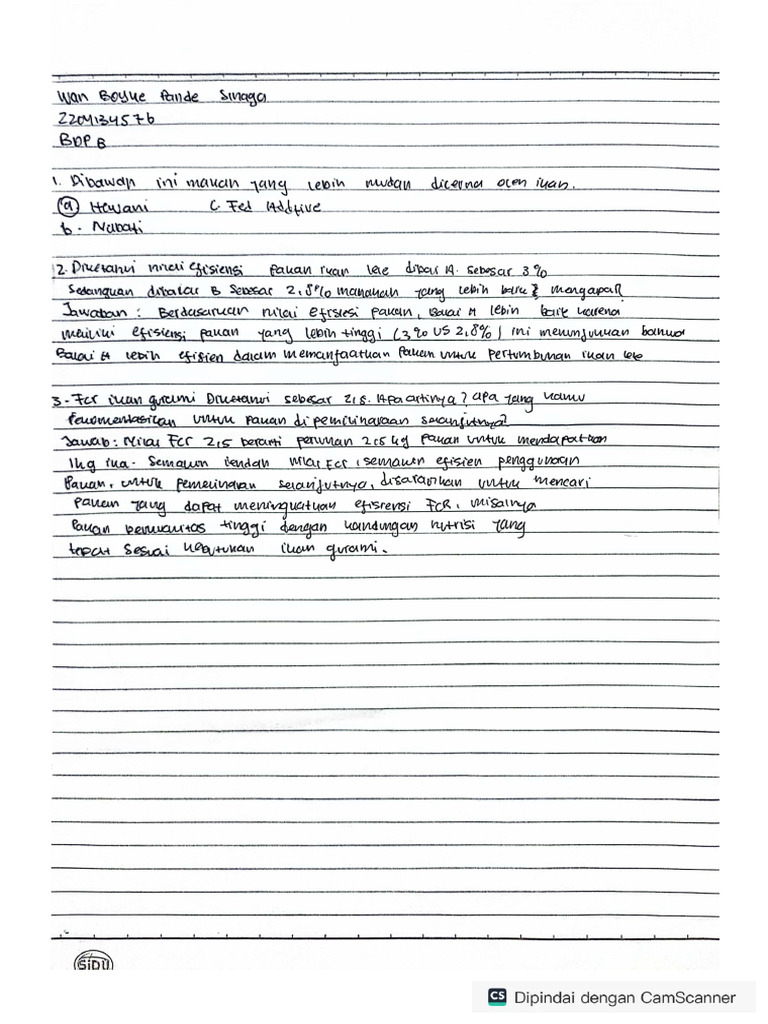 Wan Boyke Pande Sinaga
2204134576
BDP B
1. Dibawah ini makan yang lebih mudah dicerna oleh ikan.
(a) Hewani C. Fed Additive
b. Nabati
2. Diketahui nilai efisiensi pakan ikan lele dibak A. sebesar 3%
Sedangkan dibak B sebesar 2,8% manakah yang lebih baik & mengapa?
Jawaban : Berdasarkan nilai efisiesi pakan, Bak A lebih baik karena
meiliki efisiensi pakan yang lebih tinggi (3% VS 2,8%) ini menunjukkan bahwa
Bak A lebih efisien dalam memanfaatkan Pakan untuk pertumbuhan ikan lele
3. Fcr ikan gurami Diketahui sebesar 2,5. Apa artinya? apa yang kamu
untuk pakan di pemeliharaan selanjutnya?
Jawab : Nilai FCR 2,5 berarti 2,5 kg pakan untuk mendapatkan
1kg ika. Semakin rendah nilai FCR, semakin efisien penggunaan
Pakan, untuk pemeliharaan selanjutnya, disarankan untuk mencari
pakan yang dapat meningkatkan efisiensi FCR, misalnya
Pakan berkualitas tinggi dengan kandungan nutrisi yang
tepat sesuai kebutuhan ikan gurami.
SIDU
CS Dipindai dengan CamScanner